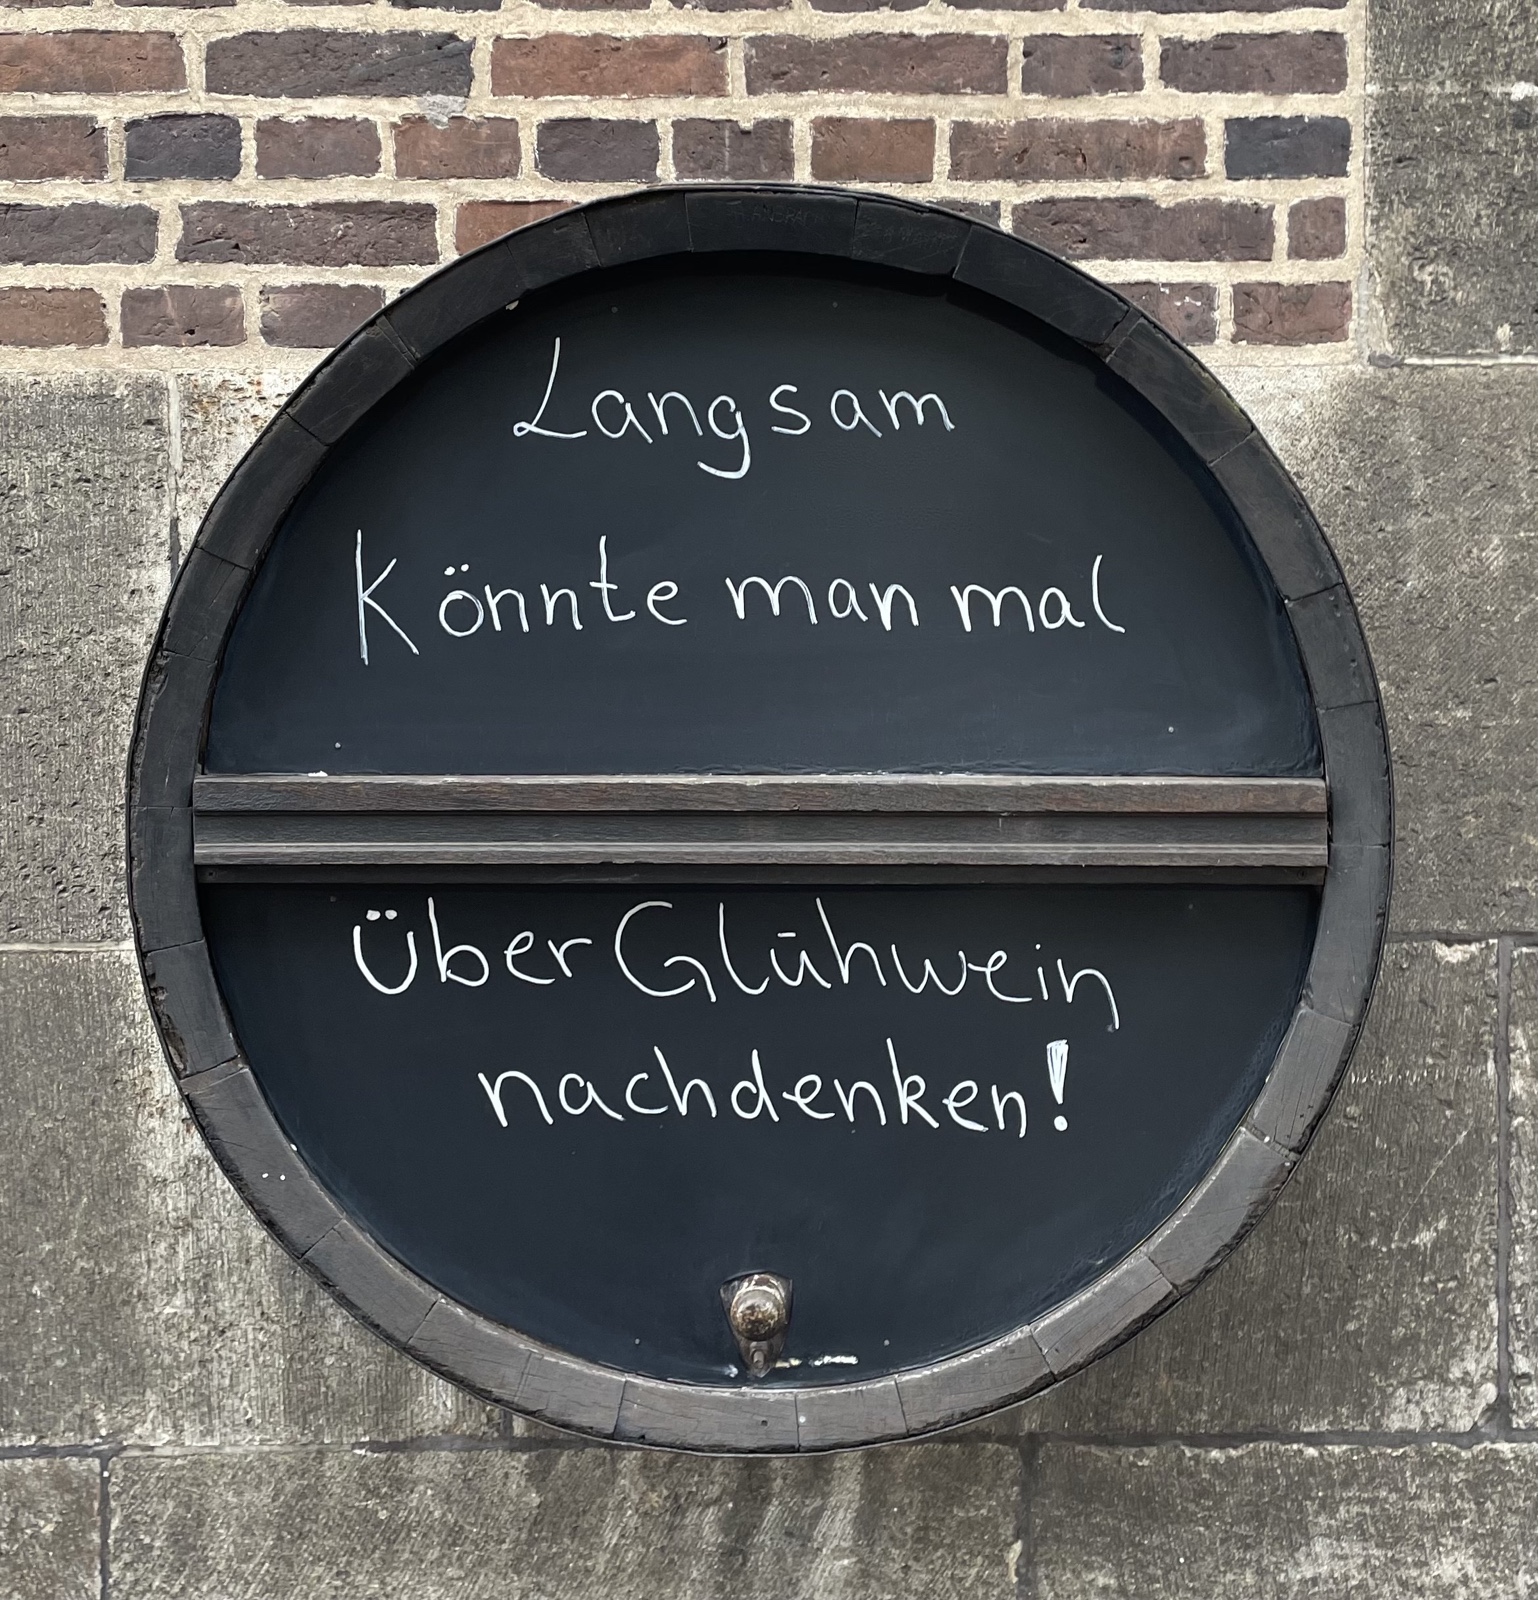 Langsam
Könnte man mal
Über Glühwein
nachdenken!